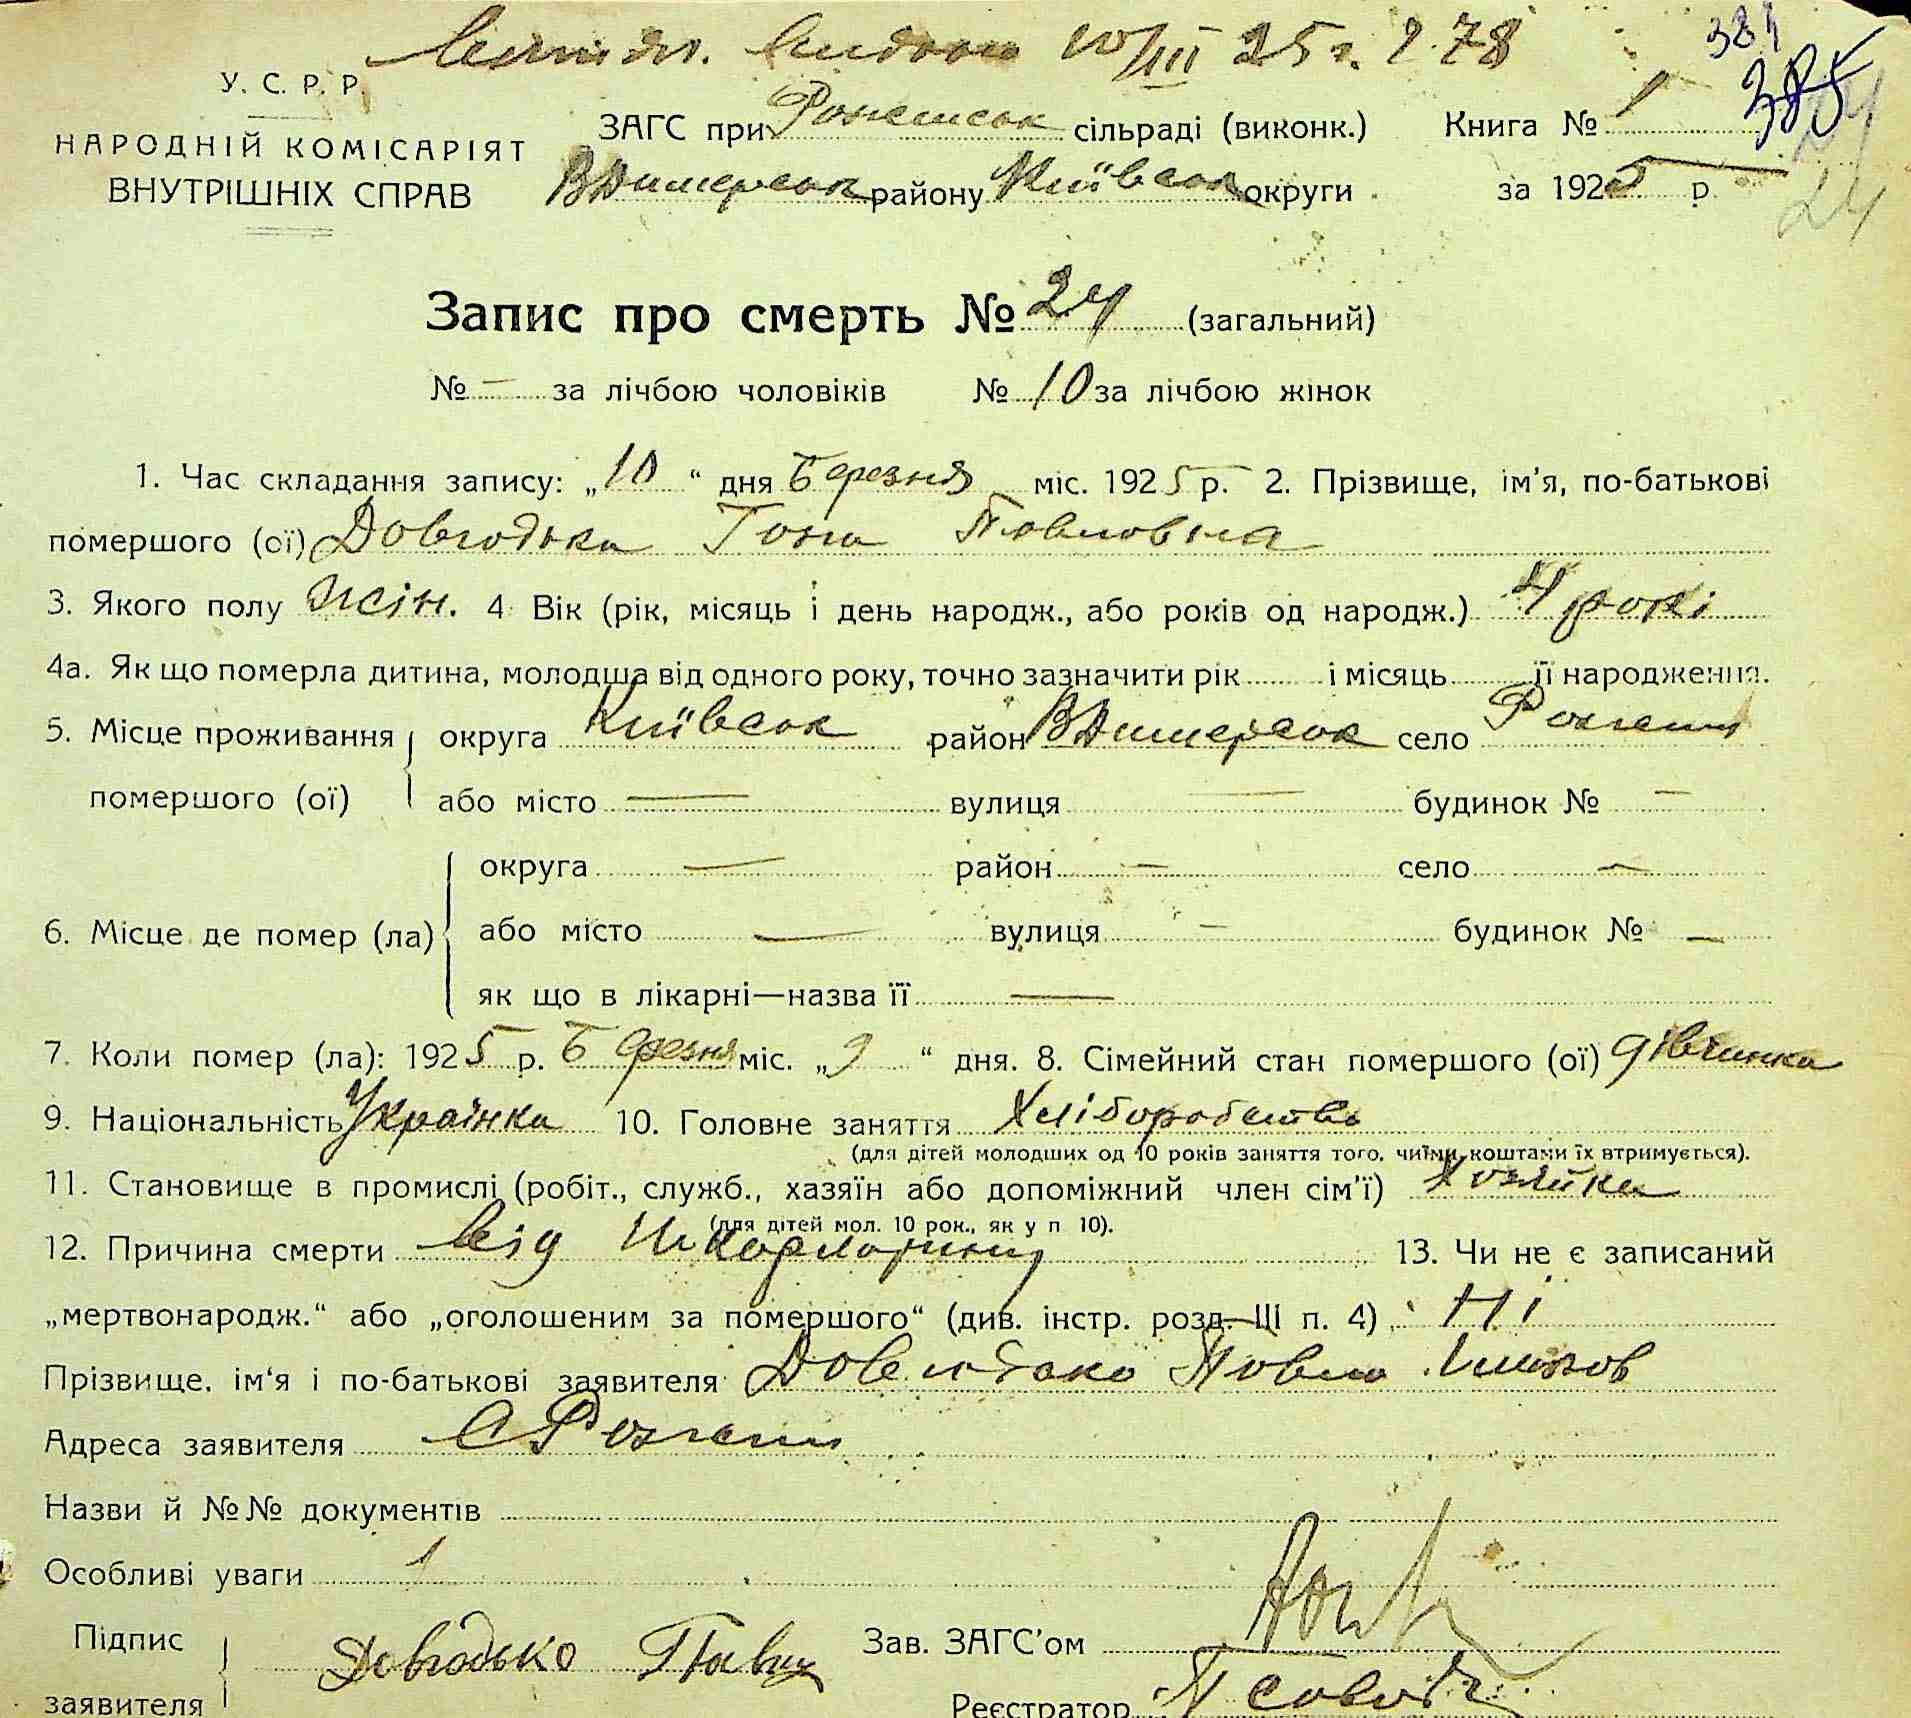 10/III 25 г. № 78
381
385
У. С. Р. Р.
НАРОДНІЙ КОМІСАРІЯТ
ВНУТРІШНІХ СПРАВ
ЗАГС при сільраді (виконк.) Книга № 1
ВДимерськ району Київськ округи за 1925 р.
24
Запис про смерть № 24 (загальний)
№ — за лічбою чоловіків № 10 за лічбою жінок
1. Час складання запису: „10“ дня Березня міс. 1925 р. 2. Прізвище, ім'я, по-батькові
помершого (ої) Довгодька Павловна
3. Якого полу жін. 4 Вік (рік, місяць і день народж., або років од народж.) 4 рокі
4а. Як що померла дитина, молодша від одного року, точно зазначити рік і місяць її народження.
5. Місце проживання округа Київськ район ВДимерськ село
помершого (ої) або місто — вулиця — будинок № —
округа — район — село —
6. Місце де помер (ла) або місто — вулиця — будинок № —
як що в лікарні—назва її —
7. Коли помер (ла): 1925 р. Березня міс. „9“ дня. 8. Сімейний стан помершого (ої) дівчинка
9. Національність Українка 10. Головне заняття Хліборобство
(для дітей молодших од 10 років заняття того, чиїми коштами їх втримується).
11. Становище в промислі (робіт., служб., хазяїн або допоміжний член сім'ї) Хозяйка
(для дітей мол. 10 рок., як у п 10).
12. Причина смерти від Шкорлотини 13. Чи не є записаний
„мертвонародж.“ або „оголошеним за помершого“ (див. інстр. розд. III п. 4) Ні
Прізвище, ім'я і по-батькові заявителя Довгодько Павло
Адреса заявителя С
Назви й №№ документів
Особливі уваги
Підпис Довгодько Павло Зав. ЗАГС'ом
заявителя Реєстратор